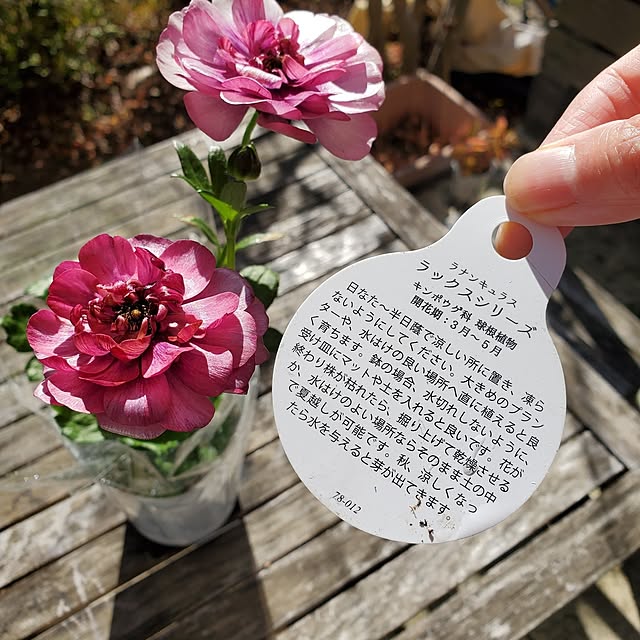 ラナンキュラス
ラックスシリーズ
キンポウゲ科 球根植物
開花期：３月～５月
日なた～半日蔭で涼しい所に置き、凍ら
ないようにしてください。大きめのプラン
ターや、水はけの良い場所へ直に植えると良
く育ちます。鉢の場合、水切れしないように、
受け皿にマットや土を入れると良いです。花が
終わり株が枯れたら、掘り上げて乾燥させる
か、水はけのよい場所ならそのまま土の中
で夏越しが可能です。秋、涼しくなっ
たら水を与えると芽が出てきます。
78-012